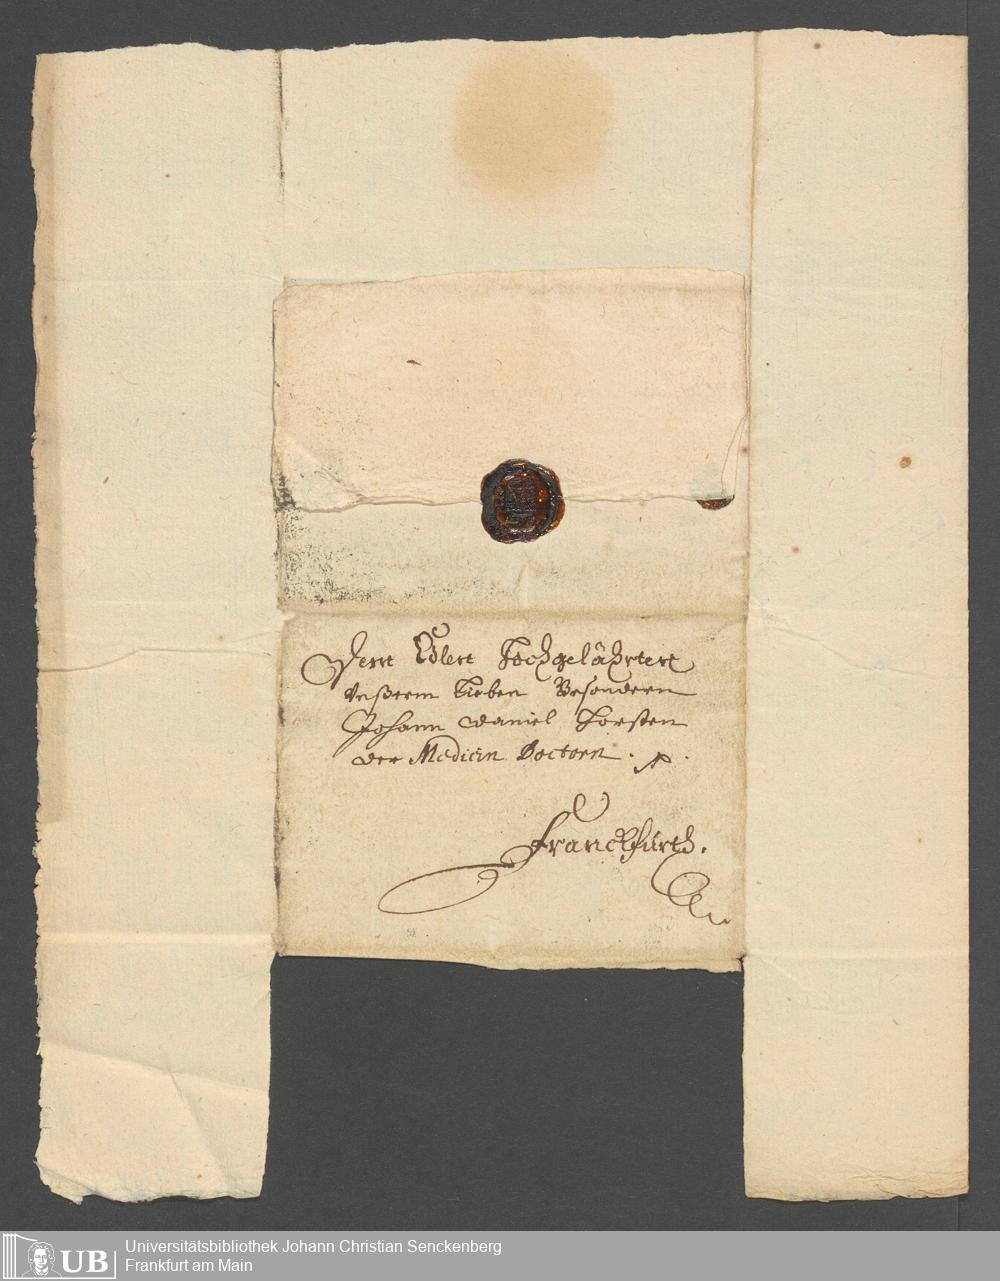 Dem Edlen Hochgelährten
Unßerm Lieben Besondern
Johann Daniel Horsten
der Medicin Doctorn.
Franckfürth.
UB
Universitätsbibliothek Johann Christian Senckenberg
Frankfurt am Main